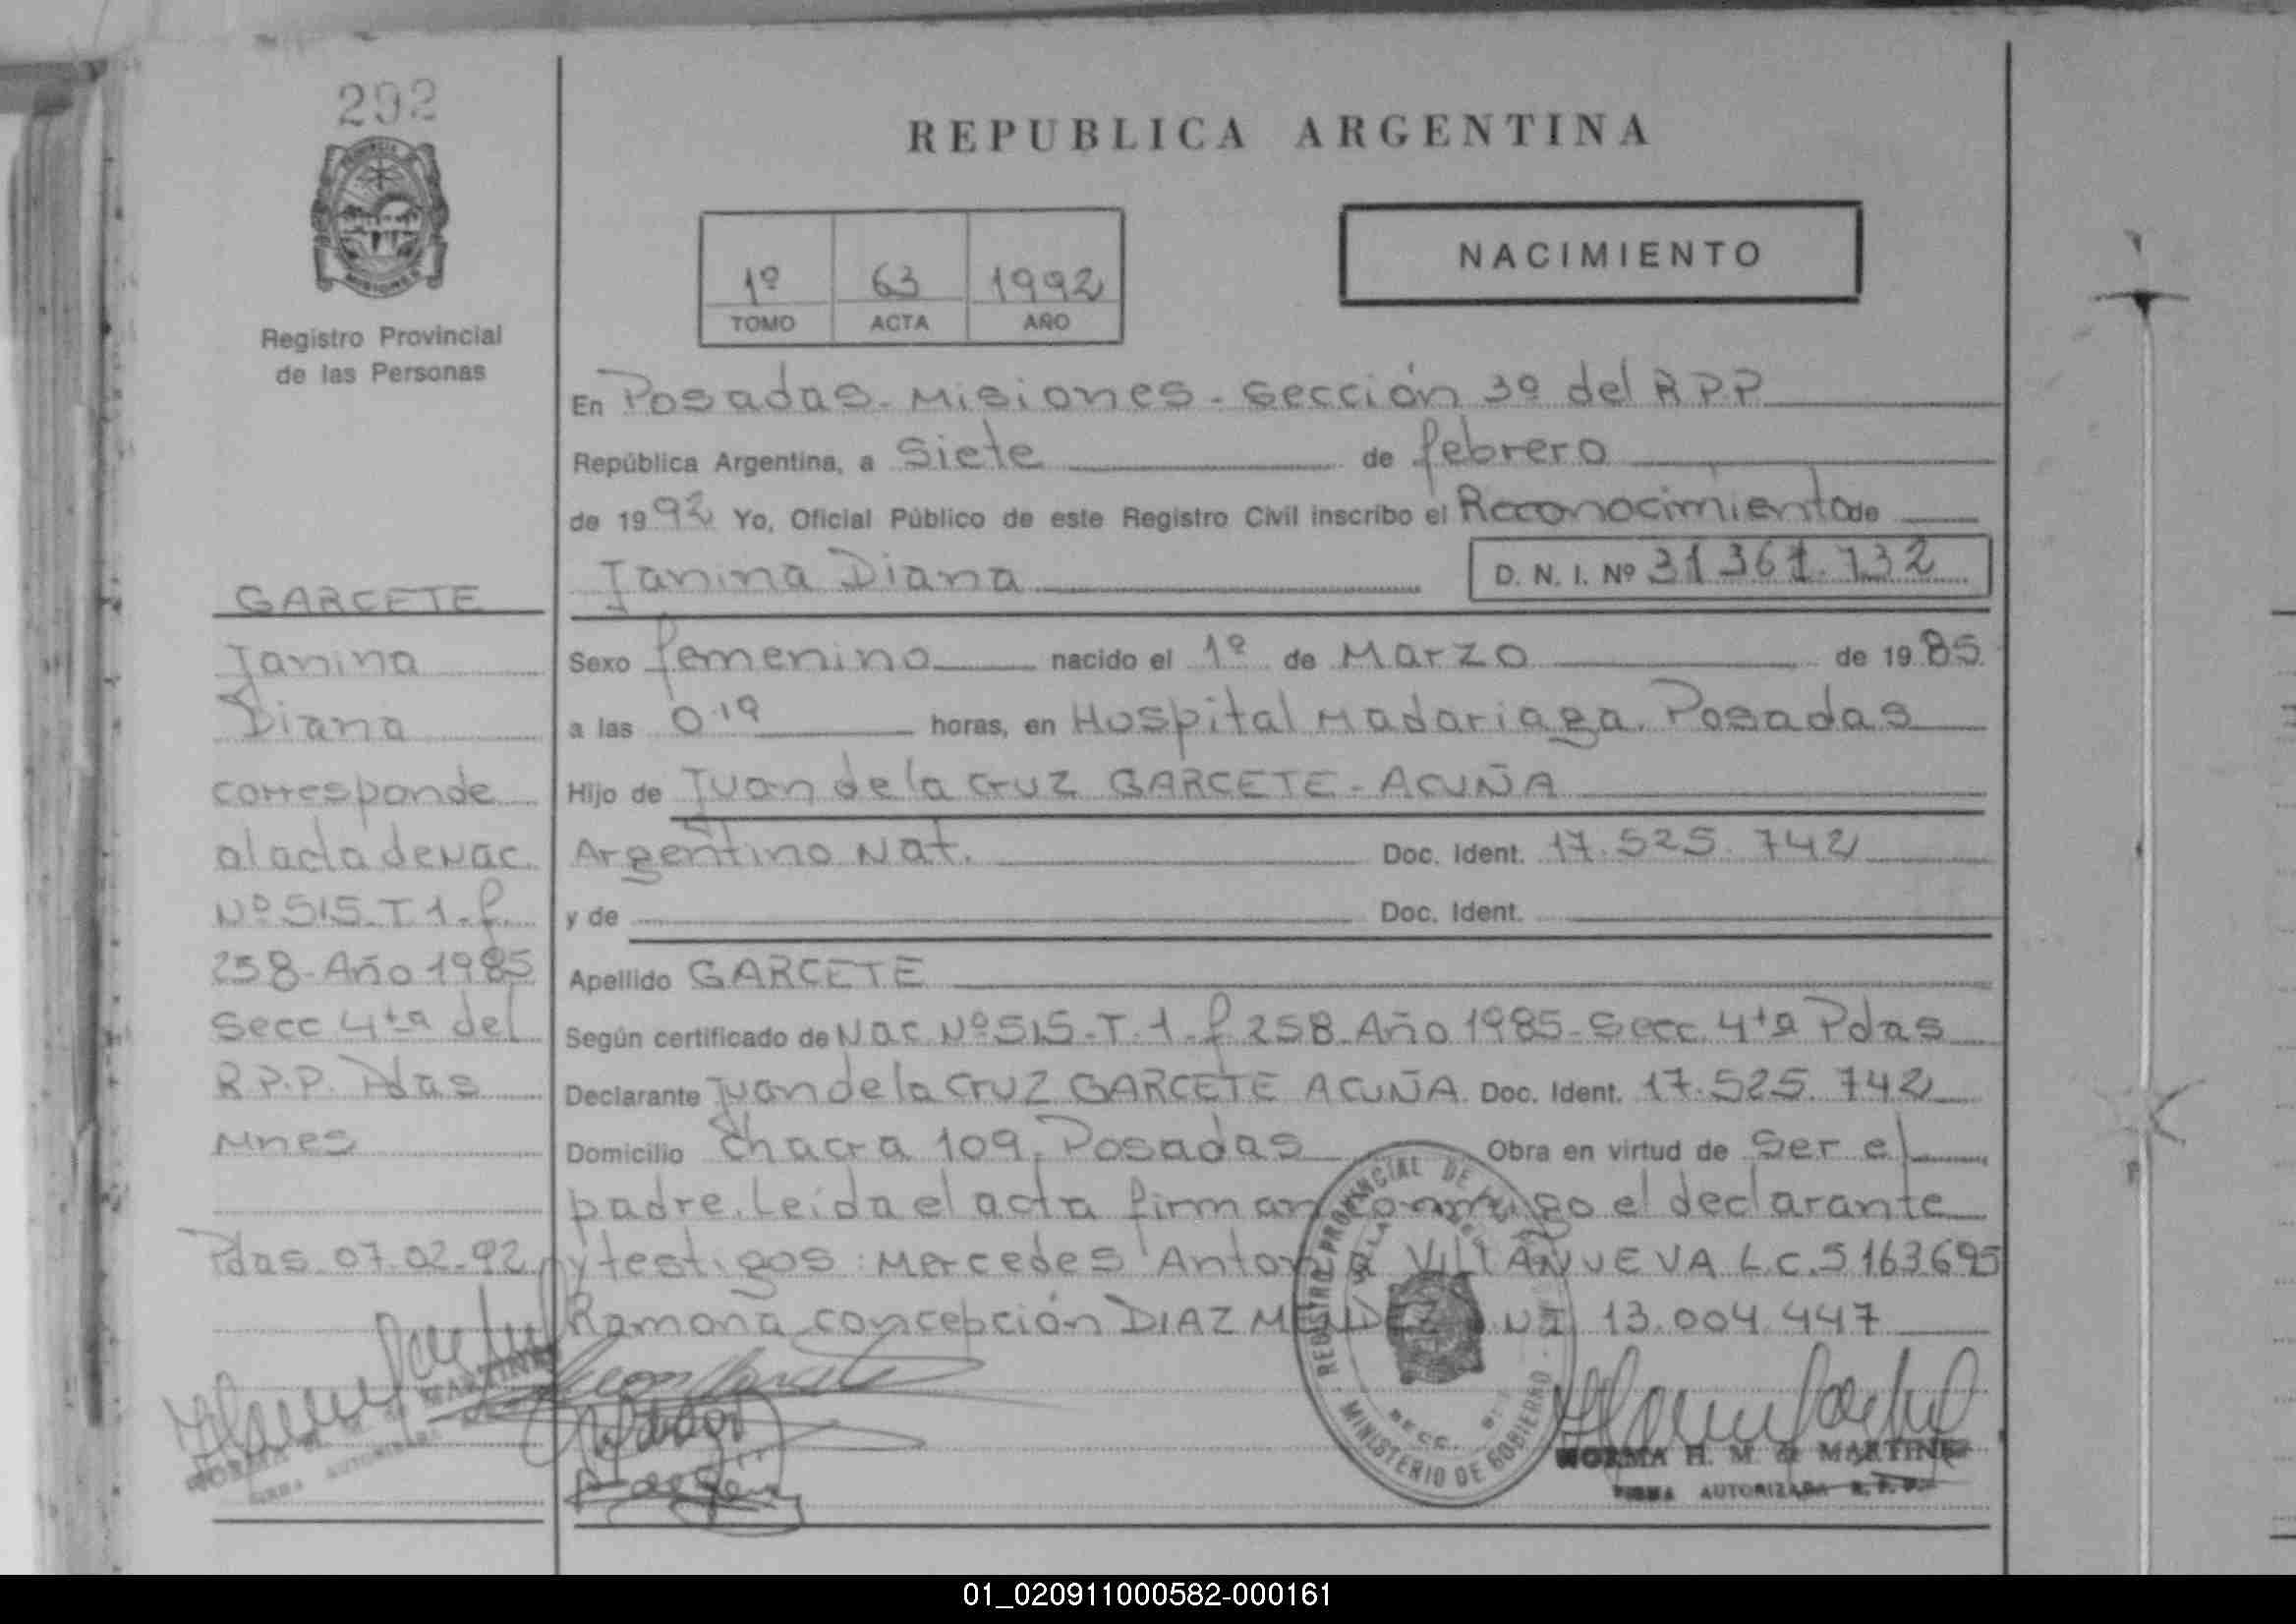 292
Registro Provincial
de las Personas
GARCETE
Janina
Diana
corresponde
al acta de Nac.
Nº 515-T 1-f.
258-Año 1985
Secc 4ta del
R.P.P. Pdas
Mnes
Pdas 07.02.92
REPUBLICA ARGENTINA
1º 63 1992
TOMO ACTA AÑO
NACIMIENTO
En Posadas-Misiones-Sección 3º del R.P.P
República Argentina, a Siete de febrero
de 1992 Yo, Oficial Público de este Registro Civil inscribo el Reconocimiento de
Janina Diana D. N. I. Nº 31361.732
Sexo femenino nacido el 1º de Marzo de 1985
a las 0.19 horas, en Hospital Madariaga. Posadas
Hijo de Juan de la Cruz GARCETE-ACUÑA
Argentino Nat. Doc. Ident. 17.525.742
y de Doc. Ident.
Apellido GARCETE
Según certificado de Nac Nº 515-T.1-f 258-Año 1985-Secc. 4ta Pdas
Declarante Juan de la Cruz GARCETE ACUÑA Doc. Ident. 17.525.742
Domicilio Chacra 109, Posadas Obra en virtud de Ser el
padre. Leída el acta firman conmigo el declarante
y testigos: Mercedes Antonia VILLANUEVA L.C. 5163695
Ramona Concepción DIAZ MENDEZ D NI 13.004.447
REGISTRO PROVINCIAL DE
MINISTERIO DE GOBIERNO
NORMA H. M. de MARTINEZ
FIRMA AUTORIZADA R. P. P.
01_020911000582-000161